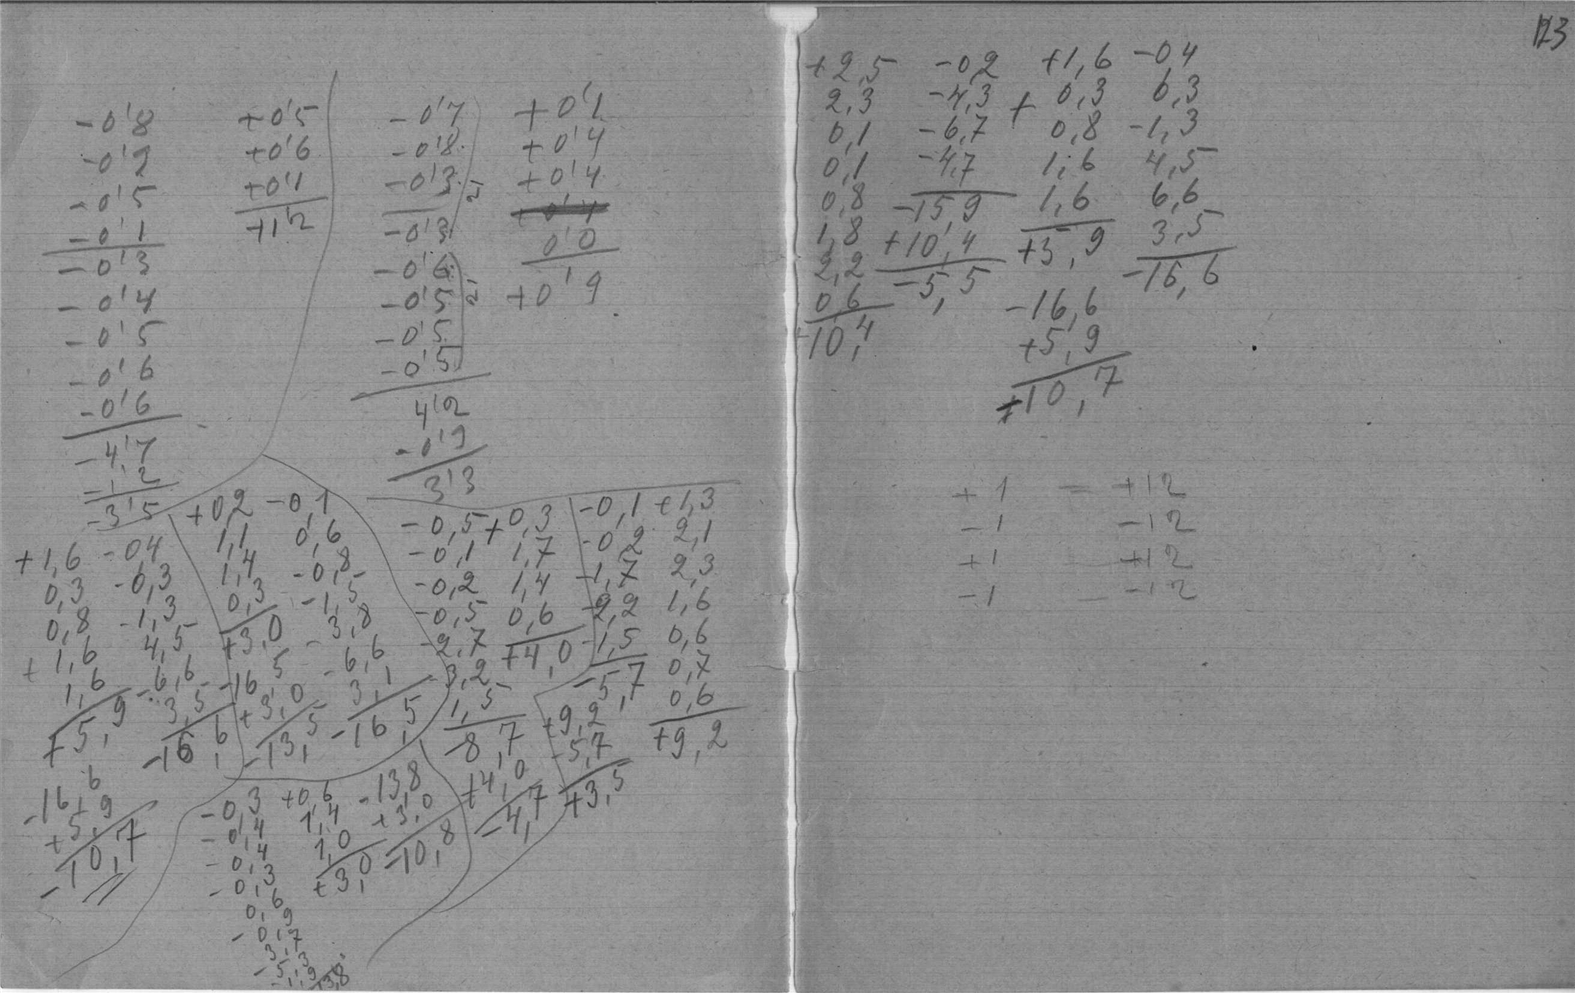 -0'8
-0'2
-0'5
-0'1
-0'3
-0'4
-0'5
-0'6
-0'6
-4'7
1'2
-3'5
+0'5
+0'6
+0'1
+1'2
-0'7
-0'8
-0'3
-0'3
-0'6
-0'5
-0'5
-0'5
4'2
-0'9
3'3
+0'1
+0'4
+0'4
0'0
+0'9
+1,6
0,3
0,8
+ 1,6
1,6
+5,9
-0,4
-0,3
-1,3
4,5
-6,6
3,5
-16,6
-16,6
+5,9
-10,7
+0,2
1,1
1,4
0,3
+3,0
-16,5
+3,0
-13,5
-0,1
0,6
-0,8
-1,5
-3,8
-6,6
3,1
-16,5
-0,5
-0,1
-0,2
-0,5
-2,7
3,2
1,5
-8,7
+4,0
-4,7
+0,3
1,7
1,4
0,6
+4,0
-0,1
-0,2
-1,7
-2,2
-1,5
-5,7
+9,2
-5,7
+3,5
+1,3
2,1
2,3
1,6
0,6
0,7
0,6
+9,2
-0,3
-0,4
-0,4
-0,3
0,6
-0,9
3,7
-5,3
-1,9
13,8
+0,6
1,4
1,0
+3,0
-13,8
+3,0
-10,8
123
+2,5
2,3
0,1
0,1
0,8
1,8
2,2
0,6
10,4
-0,2
-4,3
-6,7
-4,7
-15,9
+10,4
-5,5
+1,6
+ 0,3
0,8
1,6
1,6
+5,9
-16,6
+5,9
10,7
-0,4
0,3
-1,3
4,5
6,6
3,5
-16,6
+1 = +12
-1 -12
+1 - +12
-1 - -12